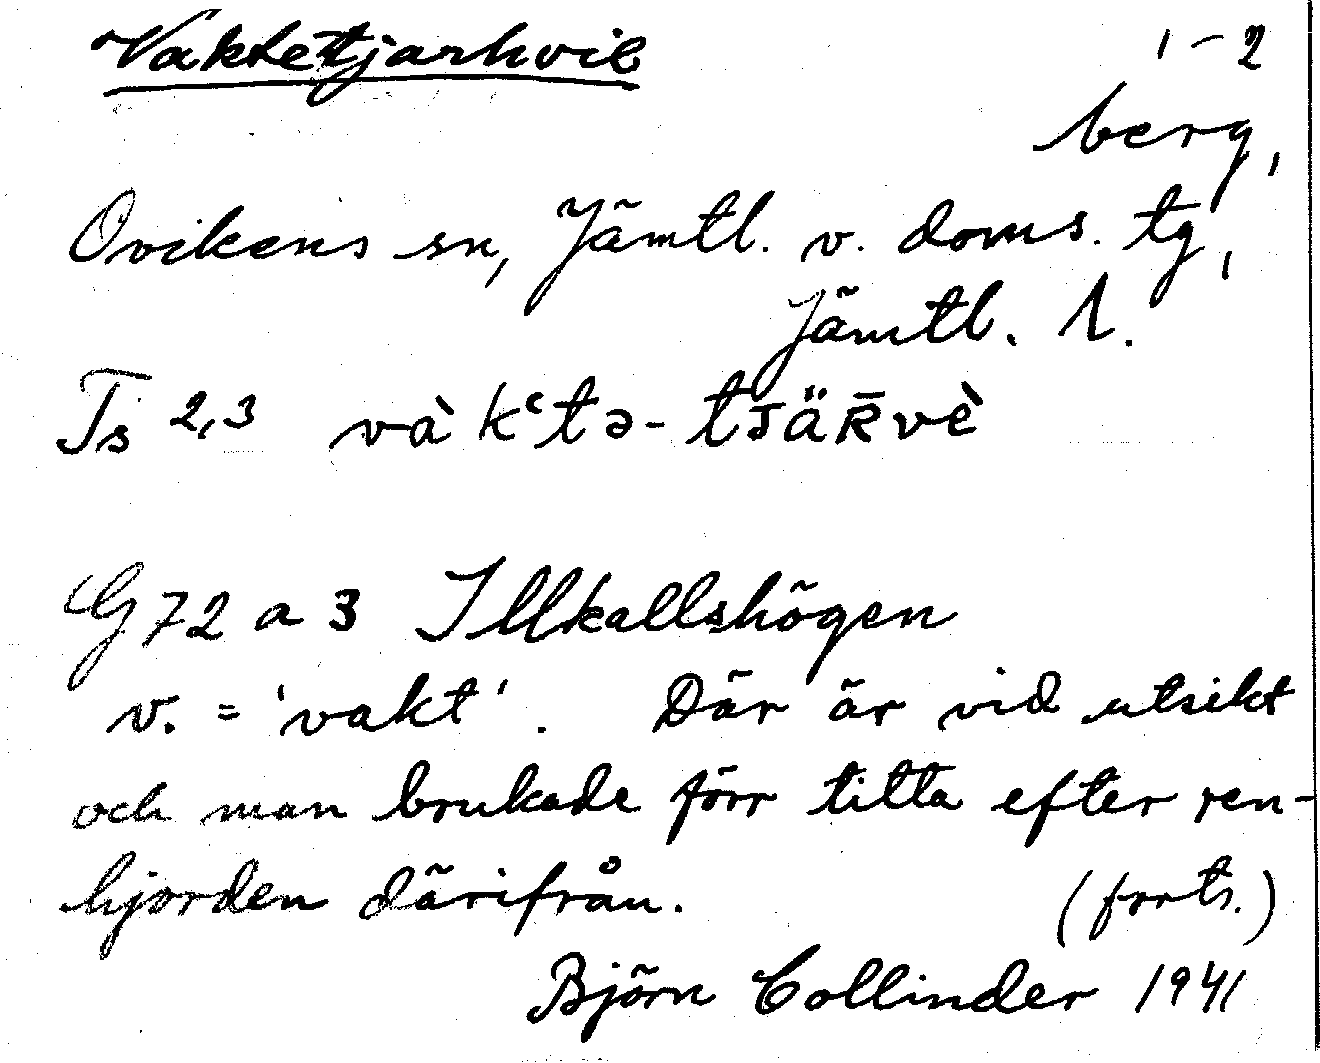 Vaktetjarhvie 1-2
berg,
Ovikens sn, Jämtl. v. doms. tg,
Jämtl. l.
Ts 2,3 và kʿtə-tJÄR̄vè
G 72 a 3 Illkallshögen
v. = 'vakt'. Där är vid utsikt
och man brukade förr titta efter ren-
hjorden därifrån. (forts.)
Björn Collinder 1941